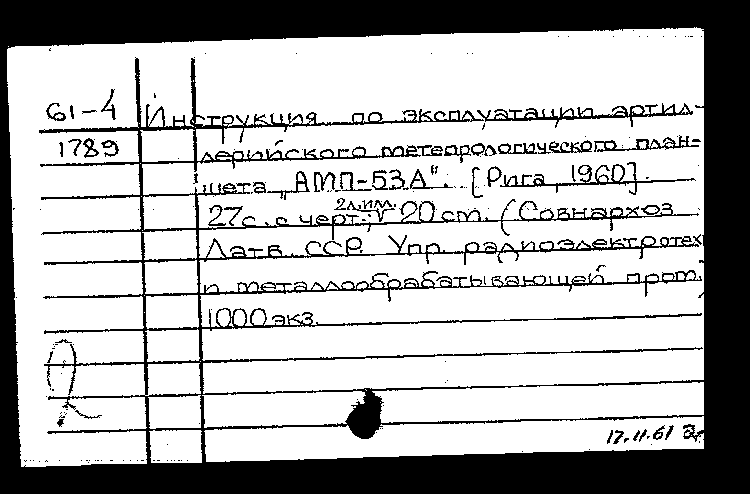 61-4 Инструкция по эксплуатации артил-
1789 лерийского метеорологического план-
шета „АМП-53А". [Рига, 1960].
2 л. илл.
27 с. с черт.; V 20 cm. (Совнархоз
Латв. ССР. Упр. радиоэлектротех
и металлообрабатывающей пром.
1000 экз.
2
17.II.61